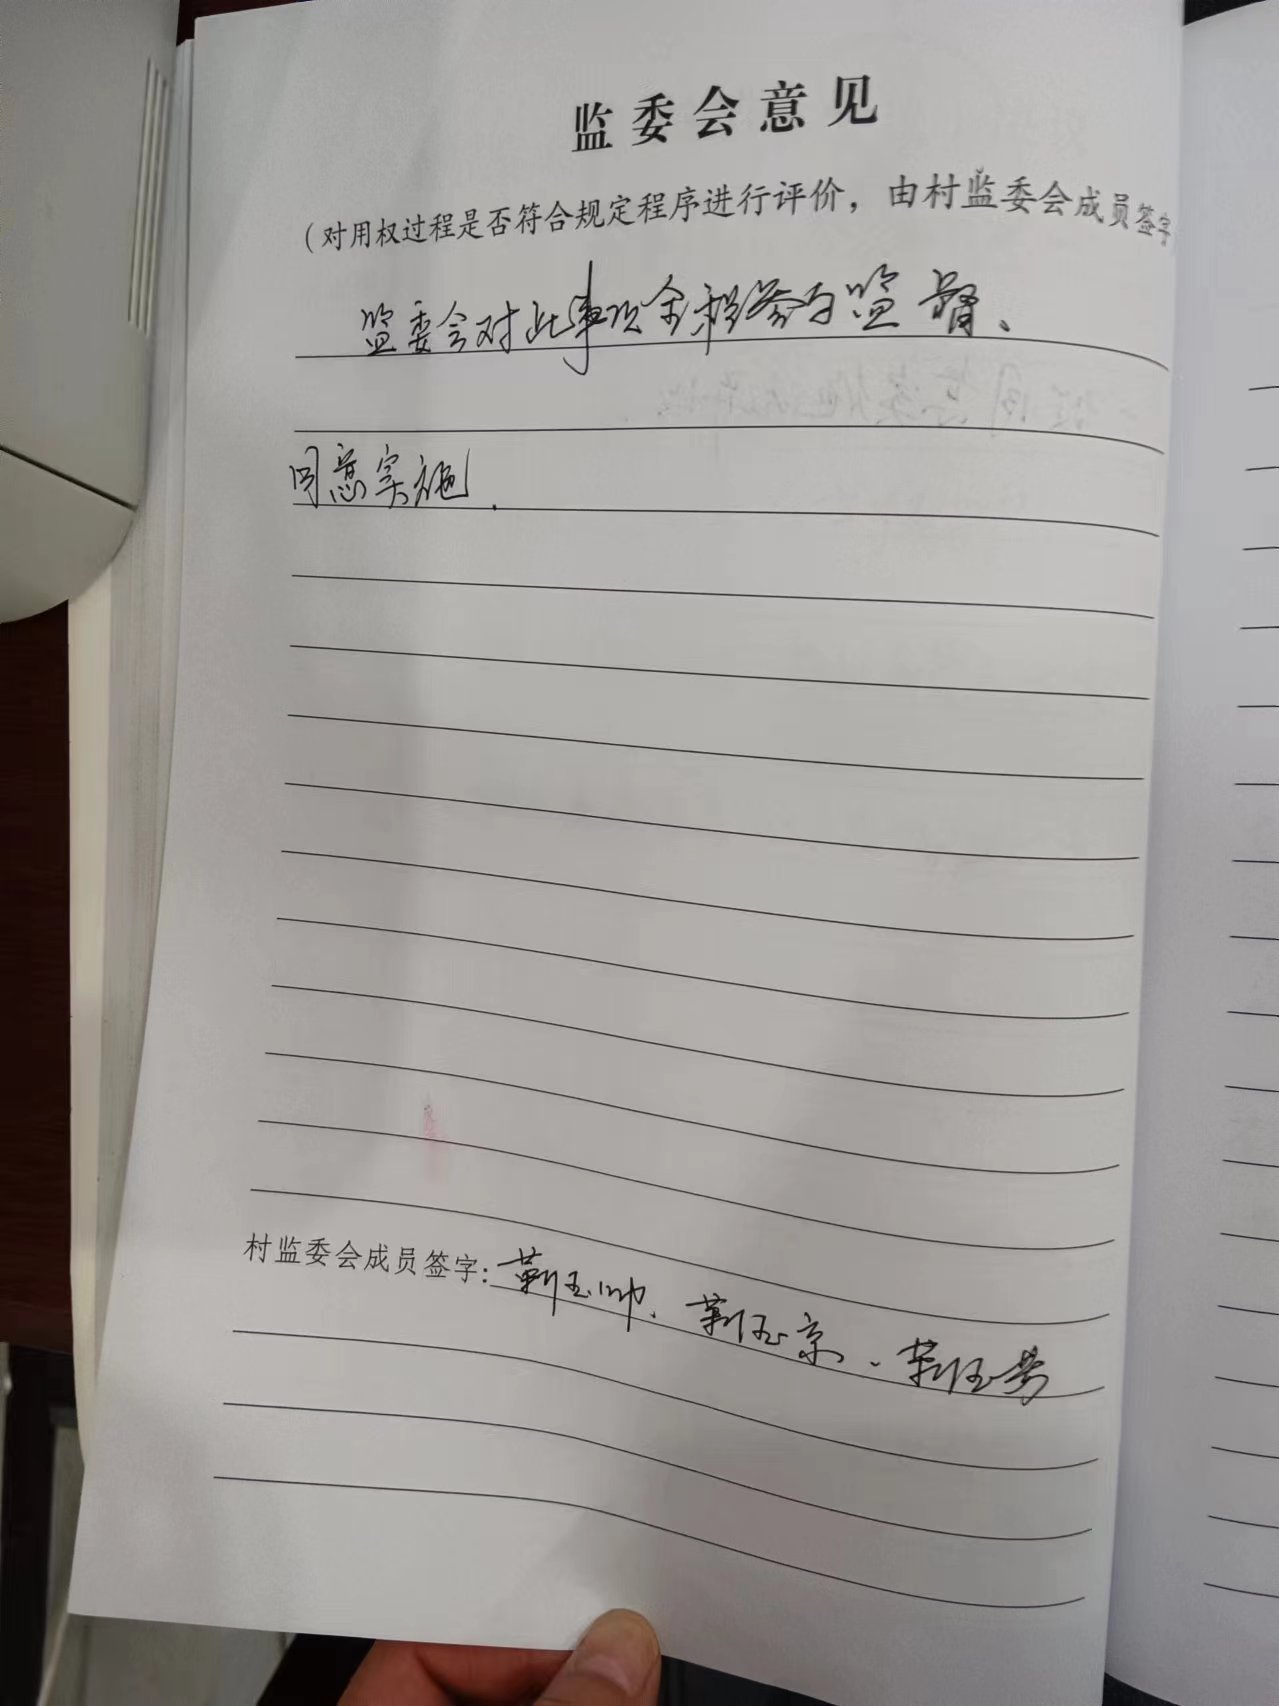 监委会意见
（对用权过程是否符合规定程序进行评价，由村监委会成员签字
监委会对此事项全程参与监督、
同意实施.
村监委会成员签字：靳玉帅、靳玉京、靳玉芳